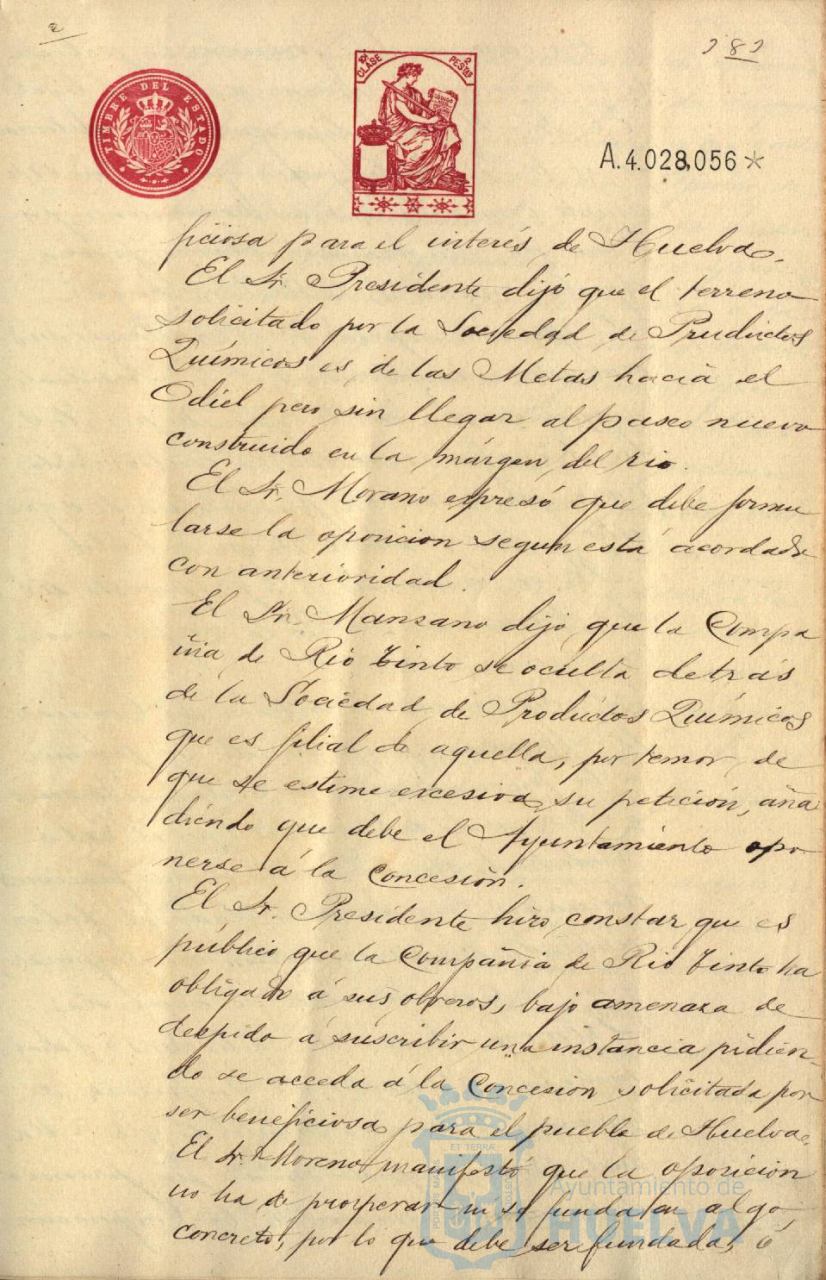 2
282
TIMBRE DEL ESTADO
10ª CLASE 2 PESETAS
A.4.028,056*
ficiosa para el interés de Huelva.
El Sr. Presidente dijó que el terreno
solicitado por la Sociedad de Productos
Químicos es de las Metas haciá el
Odiel pero sin llegar al paseo nuevo
construido en la márgen del rio.
El Sr. Morano expresó que debe formu
larse la oposicion segun está acordado
con anterioridad.
El Sr. Manzano dijo que la Compa
ñia de Rio Tinto se oculta detrás
de la Sociedad de Productos Químicos
que es filial de aquella, por temor de
que se estime excesiva su petición, aña
diendo que debe el Ayuntamiento opo
nerse á la Concesión.
El Sr. Presidente hizo constar que es
público que la Compañia de Rio Tinto ha
obligado á sus obreros, bajo amenaza de
despido á suscribir una instancia pidien
do se acceda á la Concesion solicitada por
ser beneficiosa para el pueblo de Huelva.
El Sr. Moreno manifestó que la oposicion
no ha de prosperar ni se funda en algo
concreto, por lo que debe ser fundada, ó
ET TERRA
Ayuntamiento de
HUELVA